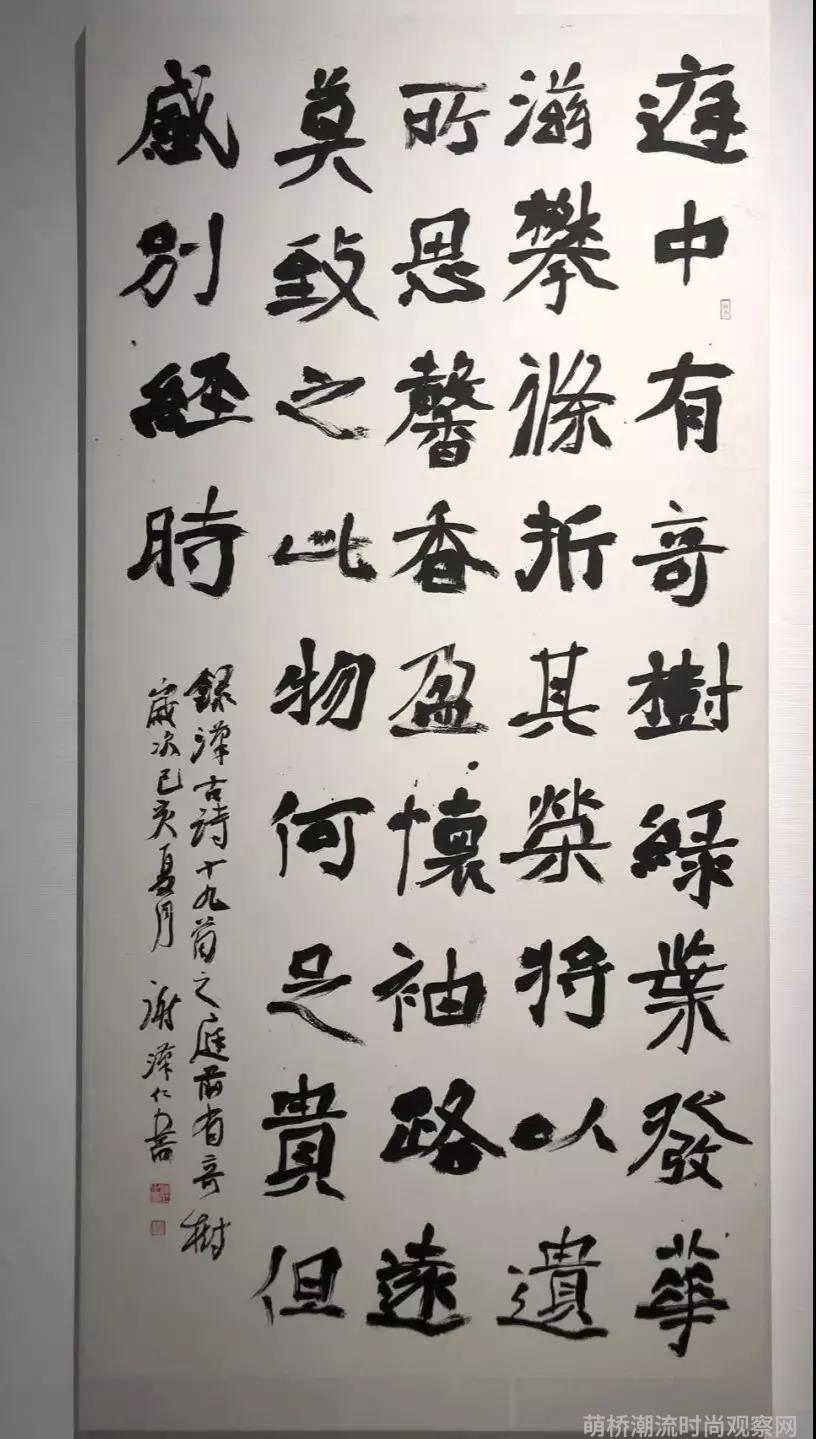 庭中有奇樹緑葉發華
滋攀條折其榮將以遺
所思馨香盈懷袖路遠
莫致之此物何足貴但
感別經時
錄漢古詩十九首之庭前有奇樹
歲次己亥夏月 謝澤仁書
萌桥潮流时尚观察网